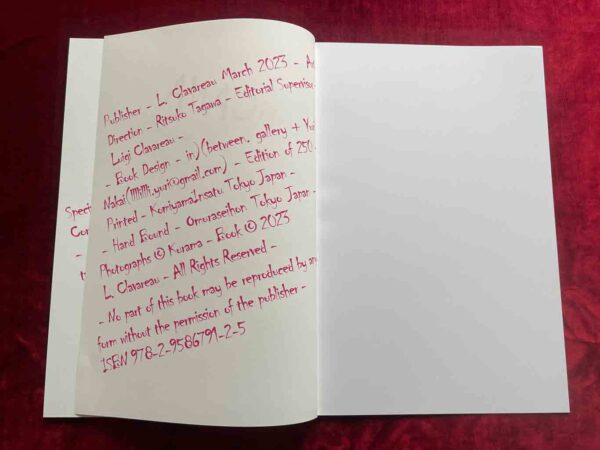 Publisher - L. Clavareau March 2023 - A
Direction - Ritsuko Tagawa - Editorial Supervisor
Luigi Clavareau -
- Book Design - in)(between. gallery + Yuri
Nakai(llllllll.yuri@gmail.com) - Edition of 250
Printed - KomiyamaInsatu Tokyo Japan -
- Hand Bound - Omoraseihon Tokyo Japan -
Photographs © Kurama - Book © 2023
L. Clavareau - All Rights Reserved -
- No part of this book may be reproduced by
form without the permission of the publisher -
ISBN 978-2-9586791-2-5
Speci
Co
-
t